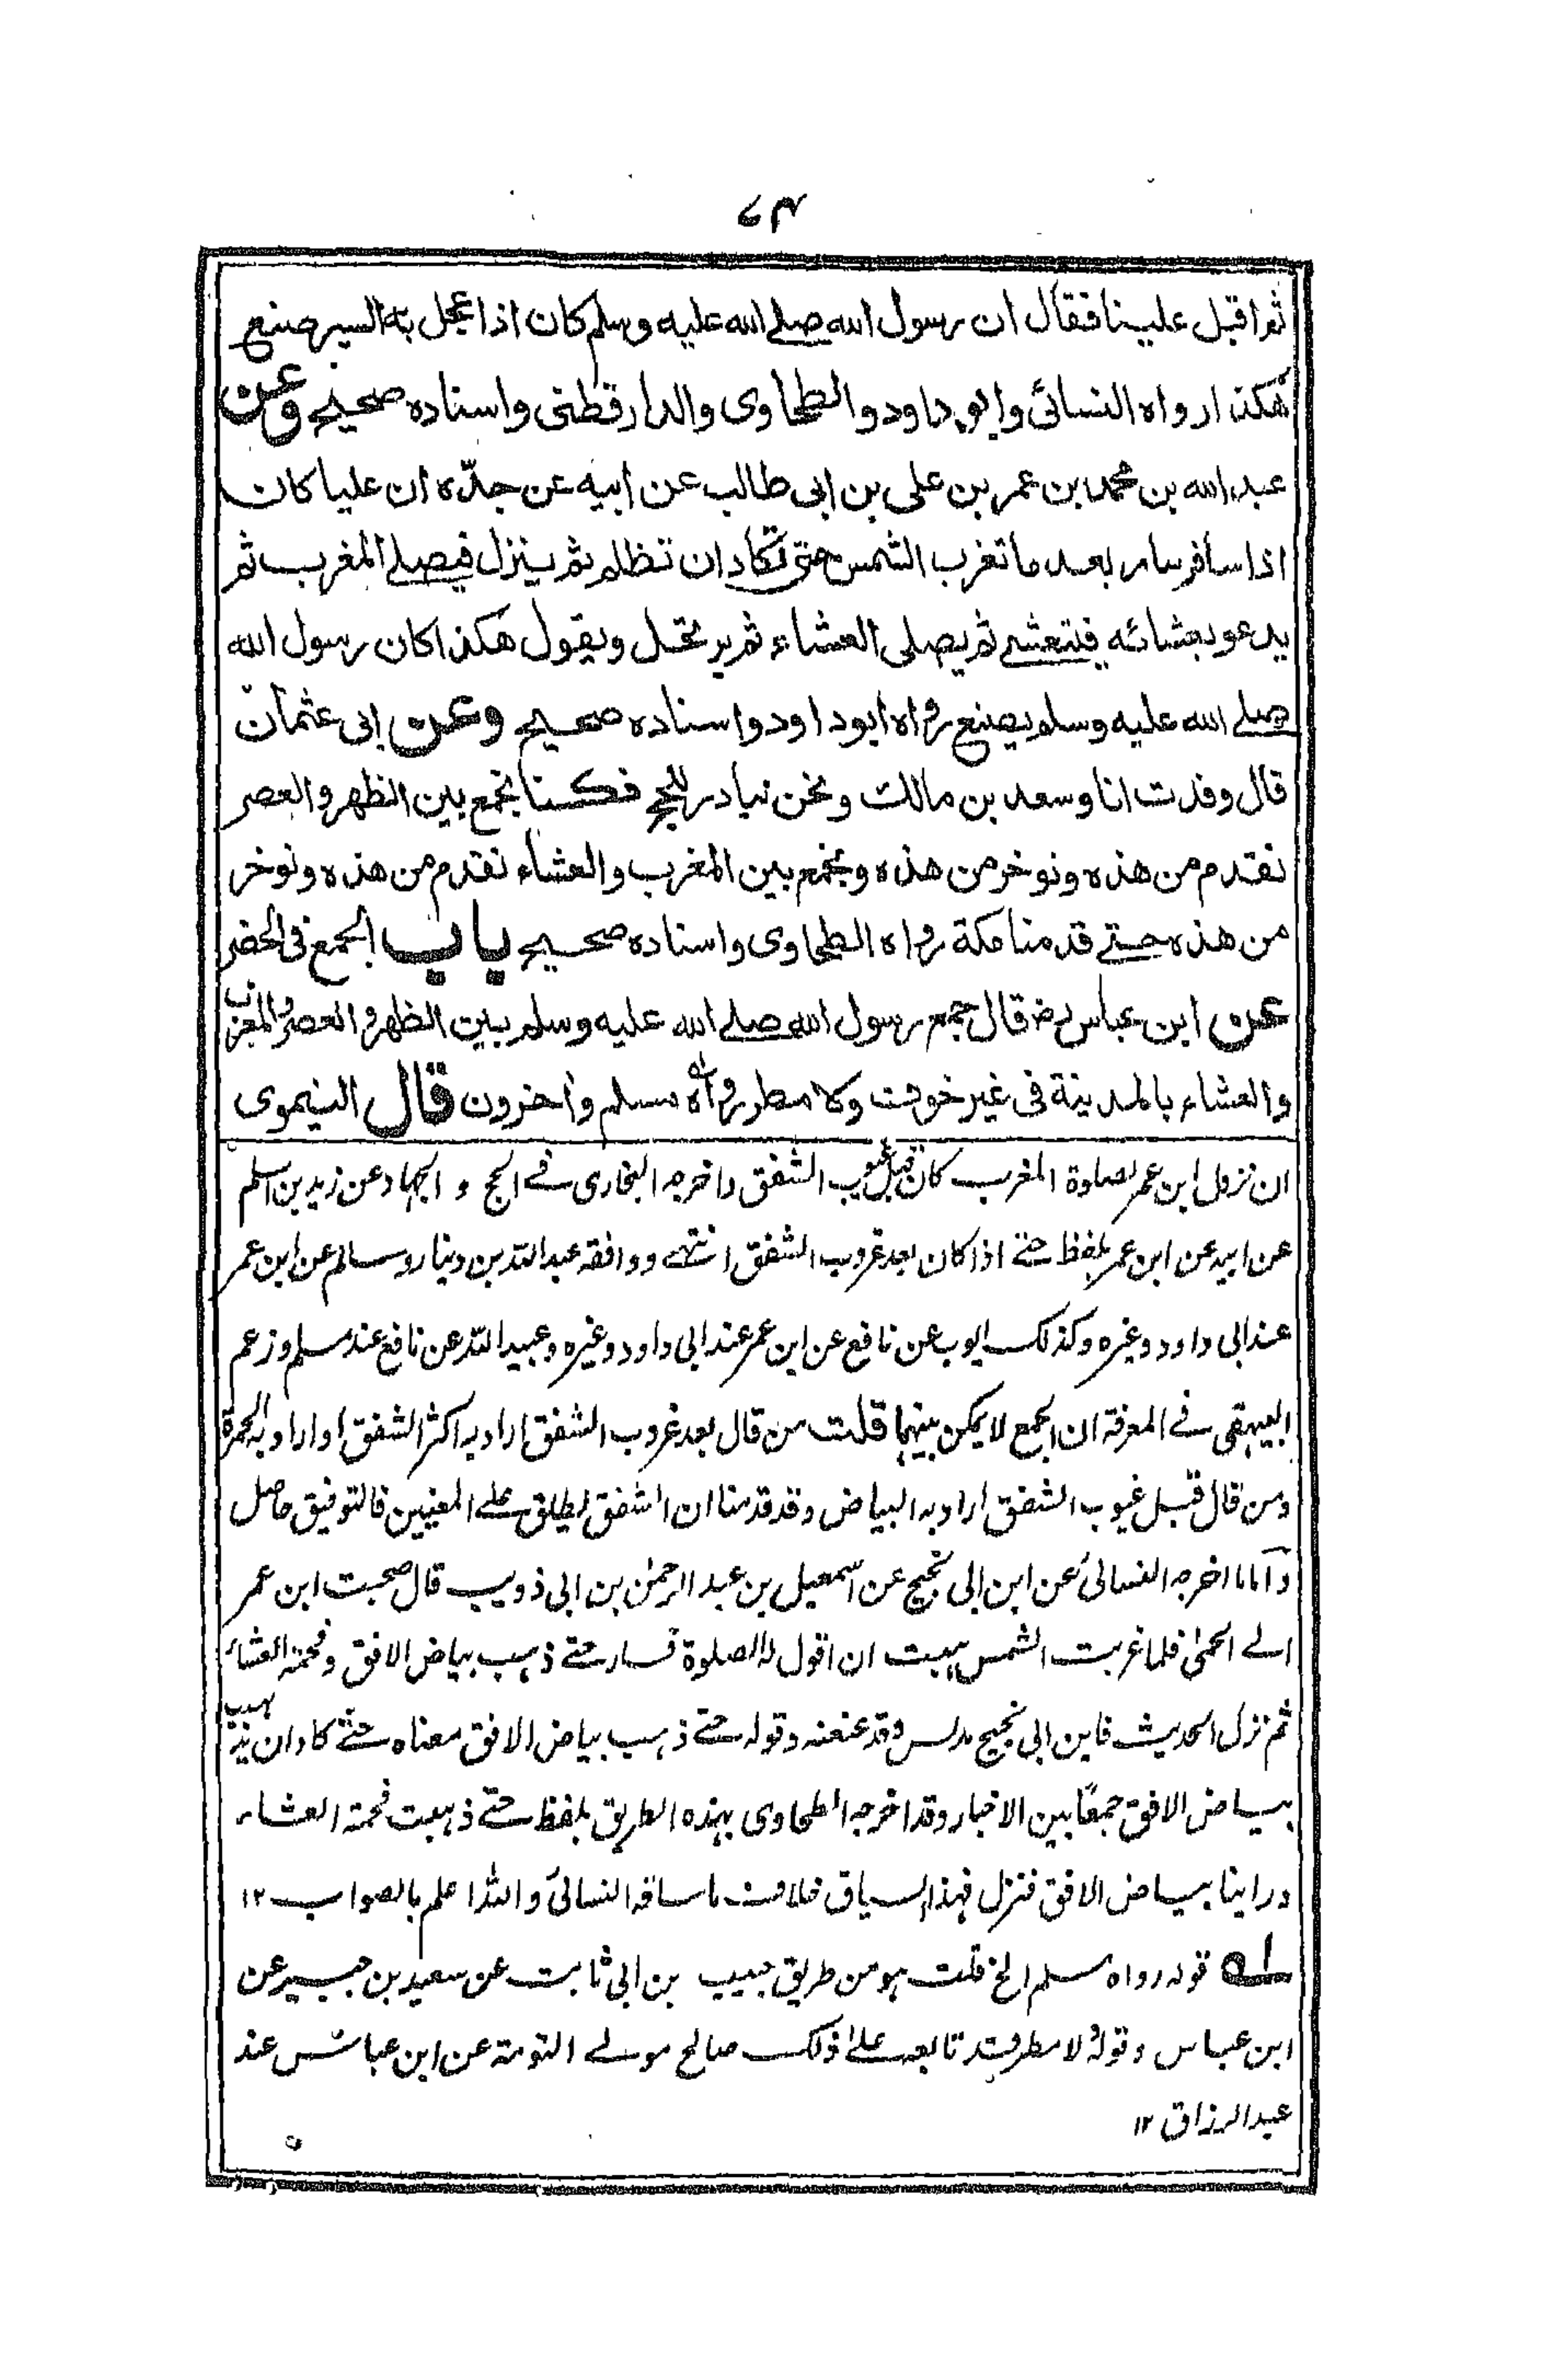 ۷۴
ثم اقبل علينا فقال ان رسول الله صلے الله عليه وسلم كان اذا عجل به السير صنع
هكذا رواه النسائى وابو داود والطحاوى والدارقطنى واسناده صحيح وعن
عبد الله بن محمد بن عمر بن على بن ابى طالب عن ابيه عن جدّه ان عليا كان
اذا سافر سار بعد ما تغرب الشمس حتى تكاد ان تظلم ثم ينزل فيصلے المغرب ثم
يدعو بعشائه فيتعشے ثم يصلى العشاء ثم يرتحل ويقول هكذا كان رسول الله
صلے الله عليه وسلم يصنع رواه ابوداود واسناده صحيح وعن ابى عثمان
قال وفدت انا وسعد بن مالك ونحن نبادر للحج فكنا نجمع بين الظهر والعصر
نقدم من هذه ونوخر من هذه ونجمع بين المغرب والعشاء نقدم من هذه ونوخر
من هذه حتے قدمنا مكة رواه الطحاوى واسناده صحيح باب الجمع فى الحضر
عن ابن عباس رض قال جمع رسول الله صلے الله عليه وسلم بين الظهر والعصر والمغرب
والعشاء بالمدينة فى غير خوف ولا مطر رواه مسلم وآخرون قال النيموى
ان نزول ابن عمر لصلوة المغرب كان قبل غيوب الشفق واخرجه البخارى فے الحج و الجهاد عن زيد بن اسلم
عن ابيه عن ابن عمر بلفظ حتے اذا كان بعد غروب الشفق انتهے ووافقه عبد الله بن دينار وسالم عن ابن عمر
عند ابى داود وغيره وكذلك ايوب عن نافع عن ابن عمر عند ابى داود وغيره وعبيد الله عن نافع عند مسلم وزعم
البيهقى فے المعرفة ان الجمع لا يمكن بينهما قلت من قال بعد غروب الشفق اراد به اكثر الشفق او اراد به الحمرة
ومن قال قبل غيوب الشفق اراد به البياض وقد قدمنا ان الشفق يطلق علے المعنيين فالتوفيق حاصل
واما ما اخرجه النسائى عن ابن ابى نجيح عن اسمعيل بن عبد الرحمٰن بن ابى ذويب قال صحبت ابن عمر
الے الحمىٰ فلما غربت الشمس هبت ان اقول له الصلوة فسار حتے ذهب بياض الافق وفحمة العشاء
ثم نزل الحديث فابن ابى نجيح مدلس وقد عنعنه وقوله حتے ذهب بياض الافق معناه حتے كاد ان يذهب
بياض الافق جمعًا بين الاخبار وقد اخرجه الطحاوى بهذه الطريق بلفظ حتے ذهبت فحمة العشاء
وراينا بياض الافق فنزل فهذا السياق خلاف ما ساقه النسائى والله اعلم بالصواب ۱۲
ـلـه قوله رواه مسلم الخ قلت هو من طريق حبيب بن ابى ثابت عن سعيد بن جبير عن
ابن عباس وقوله ولا مطر قد تابعه علے ذلك صالح مولے التومة عن ابن عباس عند
عبد الرزاق ۱۲